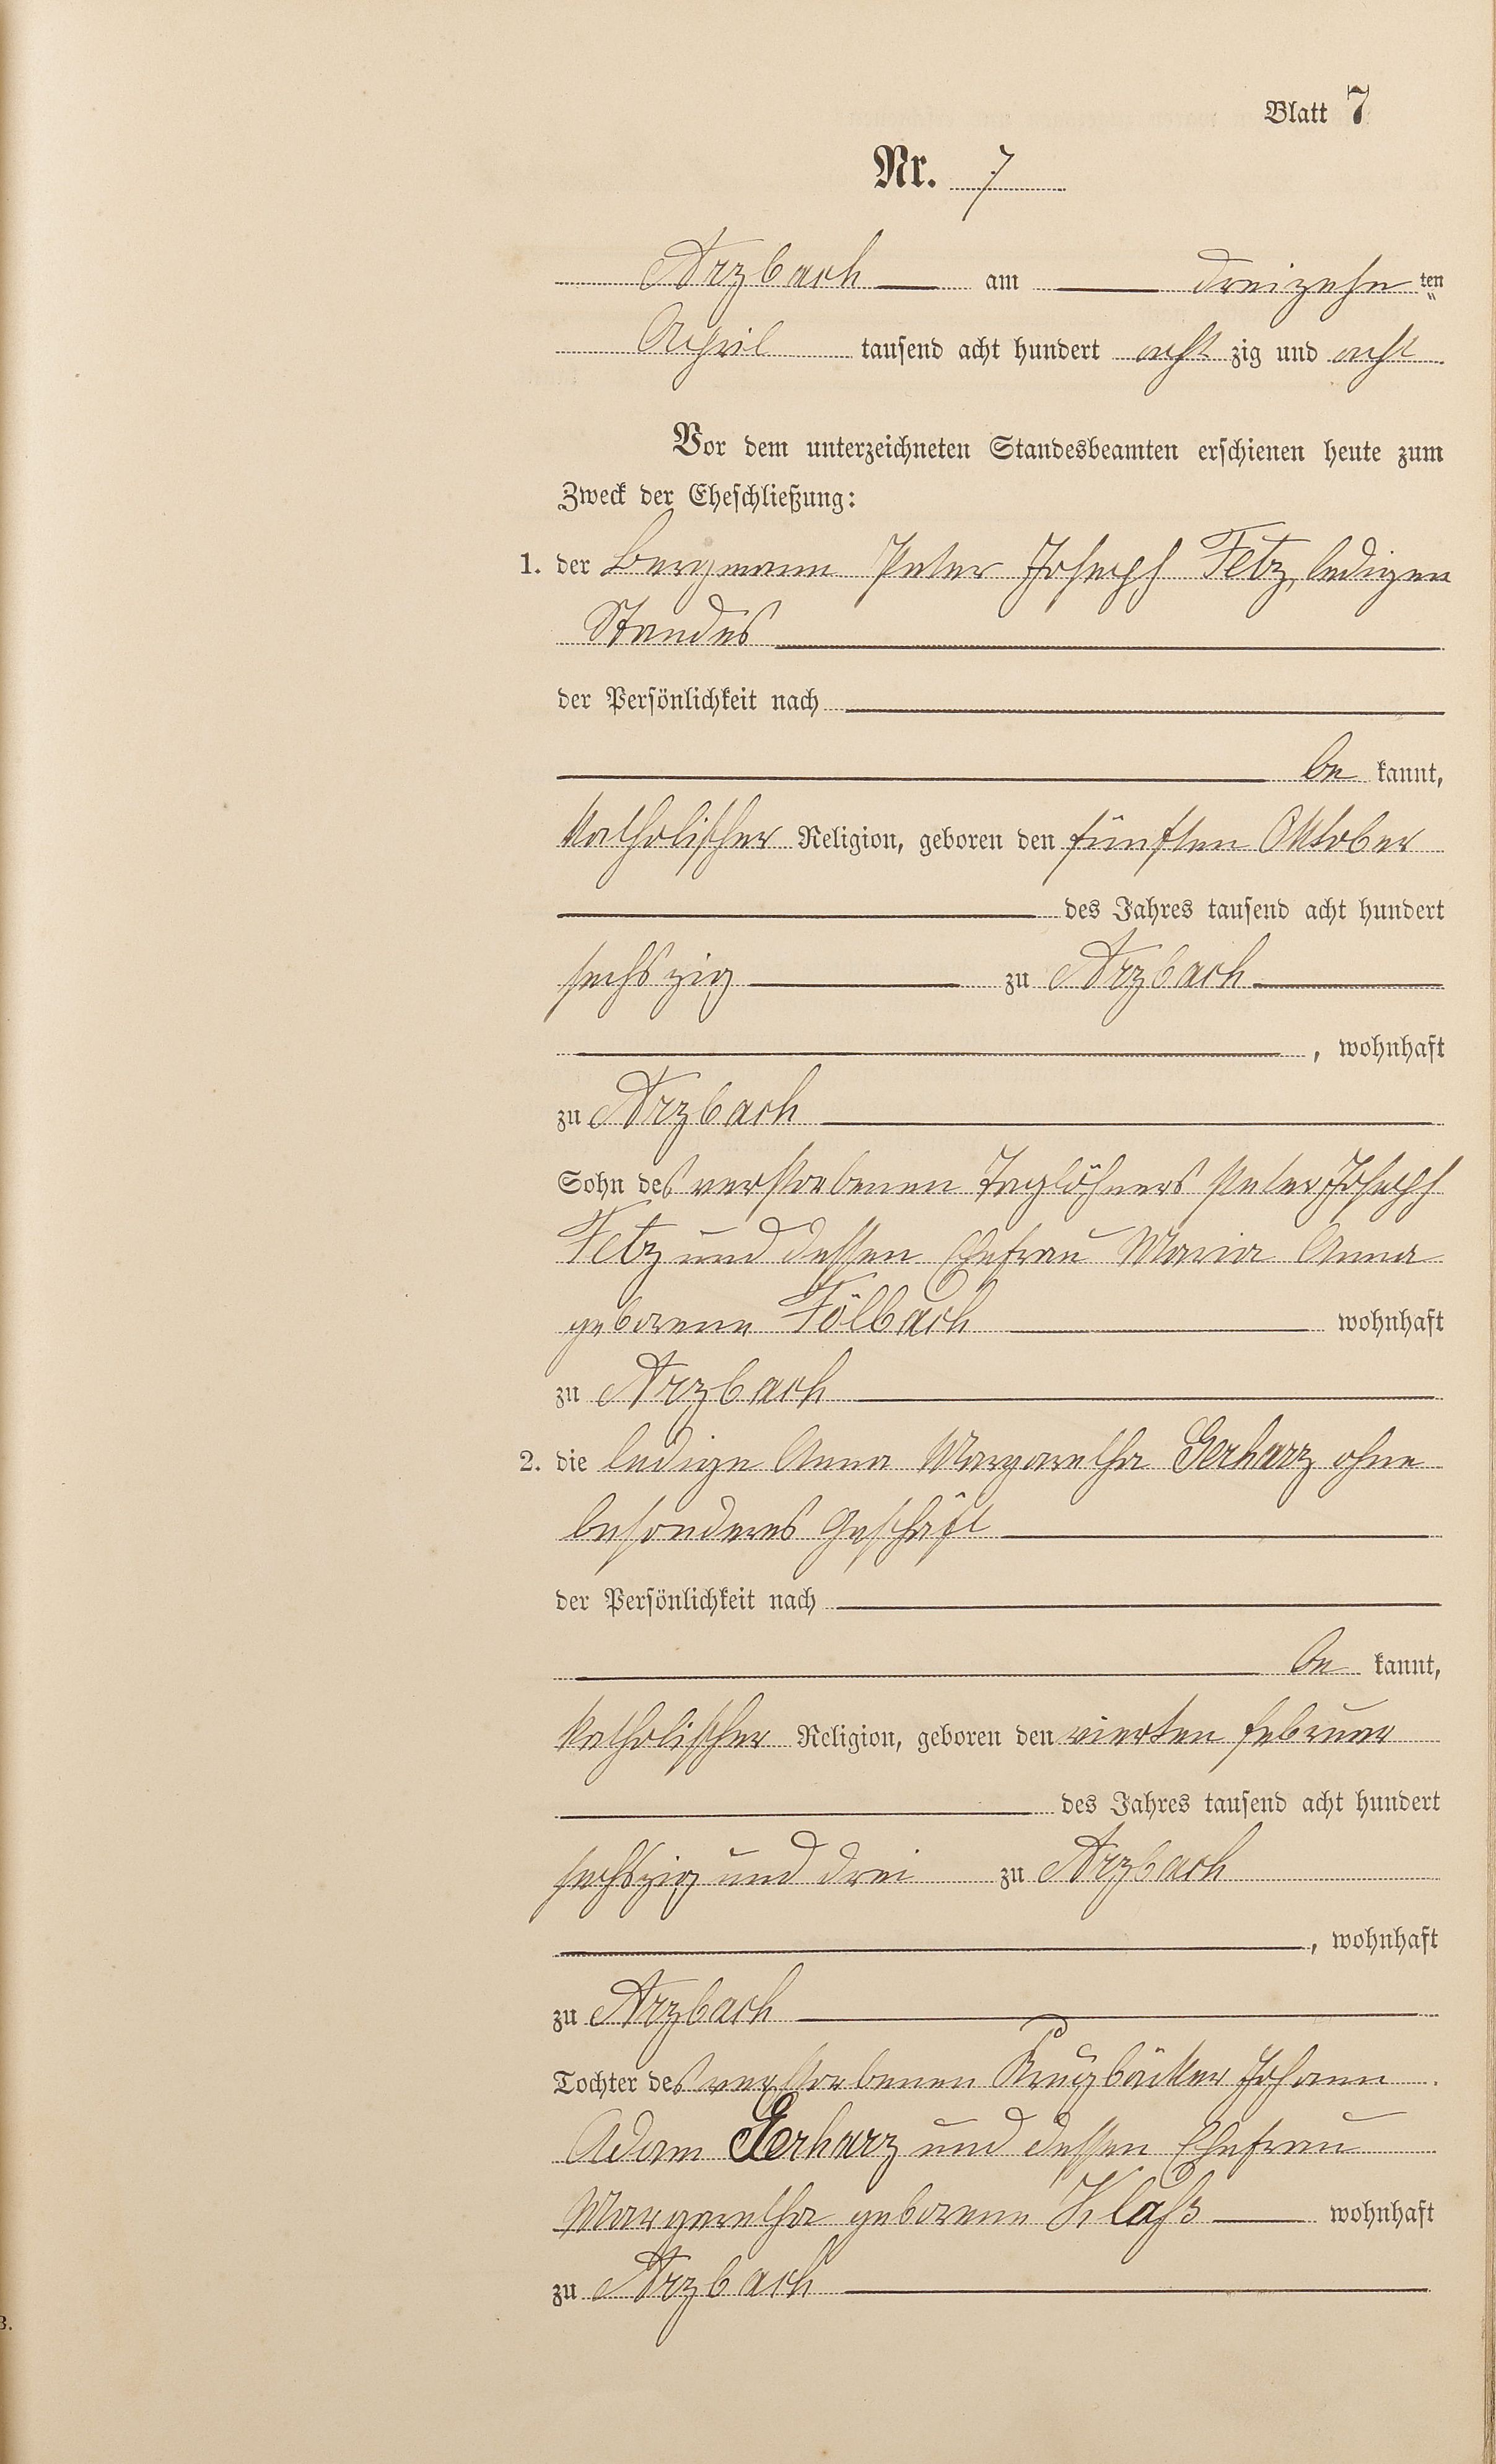 Blatt 7
Nr. 7
Arzbach am dreizehn ten
April tausend acht hundert acht zig und acht
Vor dem unterzeichneten Standesbeamten erschienen heute zum
Zweck der Eheschließung:
1. der Bergmann Peter Joseph Fetz, ledigen
Standes
der Persönlichkeit nach
be kannt,
katholischer Religion, geboren den fünften Oktober
des Jahres tausend acht hundert
sechszig zu Arzbach
, wohnhaft
zu Arzbach
Sohn des verstorbenen Taglöhners Peter Joseph
Fetz und dessen Ehefrau Maria Anna
geborene Fölbach wohnhaft
zu Arzbach
2. die ledige Anna Margaretha Gerharz ohne
besonderes Geschäft
der Persönlichkeit nach
be kannt,
katholischer Religion, geboren den vierten Februar
des Jahres tausend acht hundert
sechszig und drei zu Arzbach
, wohnhaft
zu Arzbach
Tochter des verstorbenen Krugbäcker Johann
Adam Gerharz und dessen Ehefrau
Margaretha geborene Klaß wohnhaft
zu Arzbach